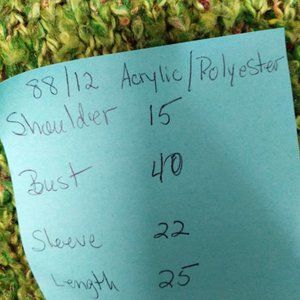 88/12 Acrylic/Polyester
Shoulder 15
Bust 40
Sleeve 22
Length 25